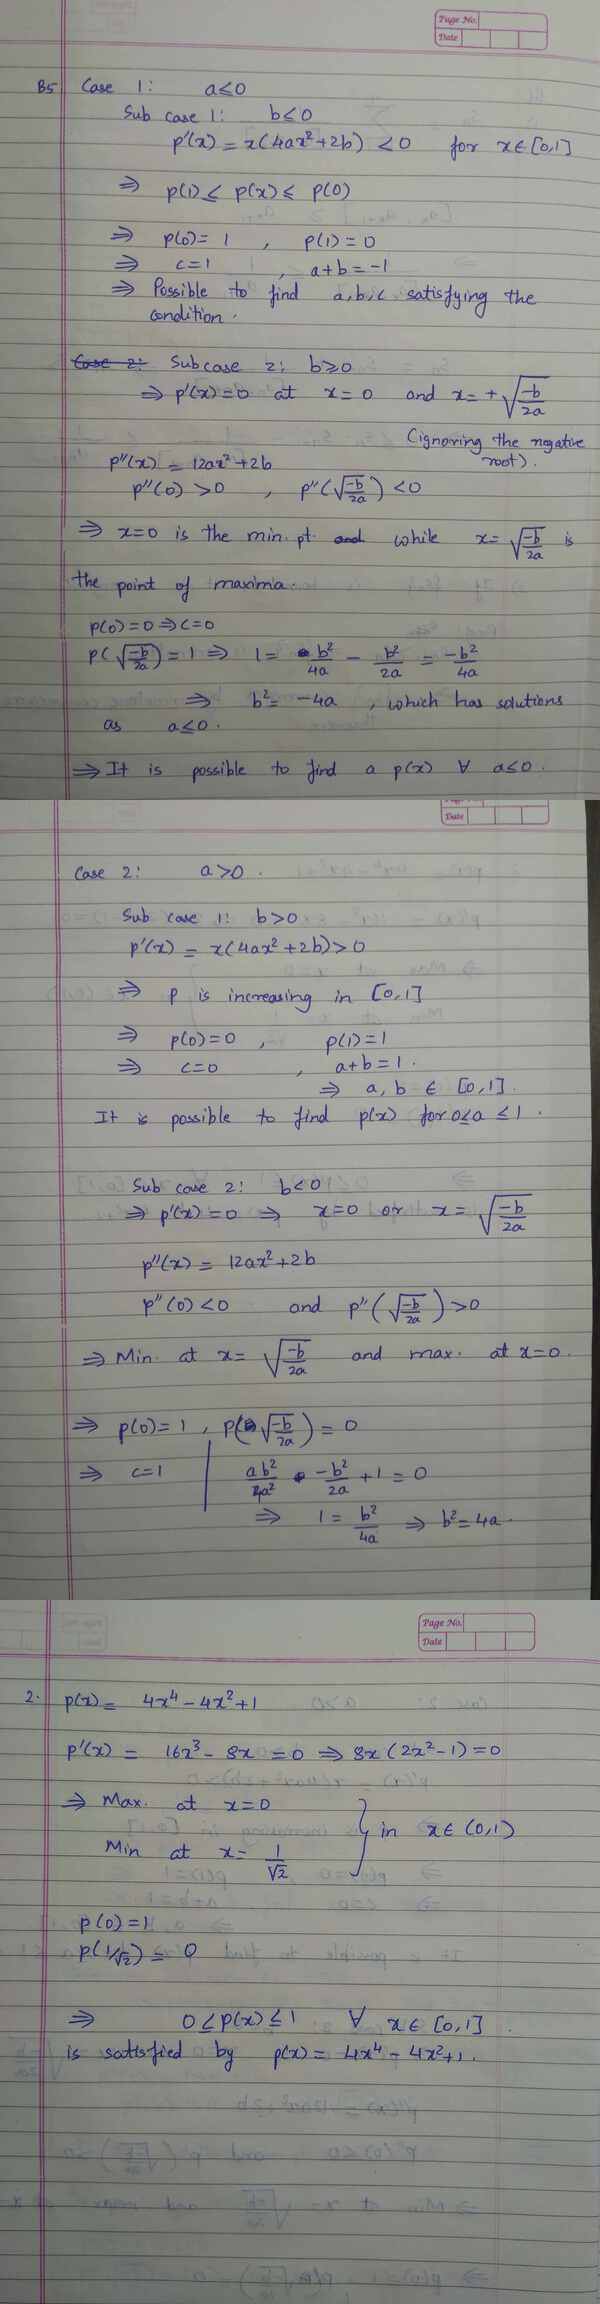 Page No.
Date
B5 Case 1: a≤0
Sub case 1: b≤0
p'(x) = x(4ax²+2b) <0 for x∈[0,1]
⇒ p(1) ≤ p(x) ≤ p(0)
⇒ p(0)=1 , p(1)=0
⇒ c=1 , a+b=-1
⇒ Possible to find a,b,c satisfying the
condition.
Case 2: Subcase 2: b≥0
⇒ p'(x)=0 at x=0 and x=+√(-b/2a)
(ignoring the negative
root).
p''(x) = 12ax²+2b
p''(0) >0 , p''(√(-b/2a)) <0
⇒ x=0 is the min. pt. and while x=√(-b/2a) is
the point of maxima.
p(0)=0 ⇒ c=0
p(√(-b/2a)) = 1 ⇒ 1 = b²/4a - b²/2a = -b²/4a
⇒ b² = -4a , which has solutions
as a≤0.
⇒ It is possible to find a p(x) ∀ a≤0.
Date
Case 2: a>0.
Sub case 1: b>0
p'(x) = x(4ax²+2b)>0
⇒ p is increasing in [0,1]
⇒ p(0)=0 , p(1)=1
⇒ c=0 , a+b=1.
⇒ a, b ∈ [0,1].
It is possible to find p(x) for 0≤a ≤1.
Sub case 2: b<0
⇒ p'(x)=0 ⇒ x=0 or x=√(-b/2a)
p''(x) = 12ax²+2b
p''(0) <0 and p''(√(-b/2a)) >0
⇒ Min. at x=√(-b/2a) and max. at x=0.
⇒ p(0)=1 , p(√(-b/2a)) = 0
⇒ c=1 | ab²/4a² - b²/2a +1 = 0
⇒ 1 = b²/4a ⇒ b²=4a.
Page No.
Date
2. p(x) = 4x⁴-4x²+1
p'(x) = 16x³-8x =0 ⇒ 8x(2x²-1)=0
⇒ Max. at x=0
Min at x=1/√2 } in x∈(0,1)
p(0)=1
p(1/√2) = 0
⇒ 0≤p(x)≤1 ∀ x∈[0,1].
is satisfied by p(x) = 4x⁴-4x²+1.